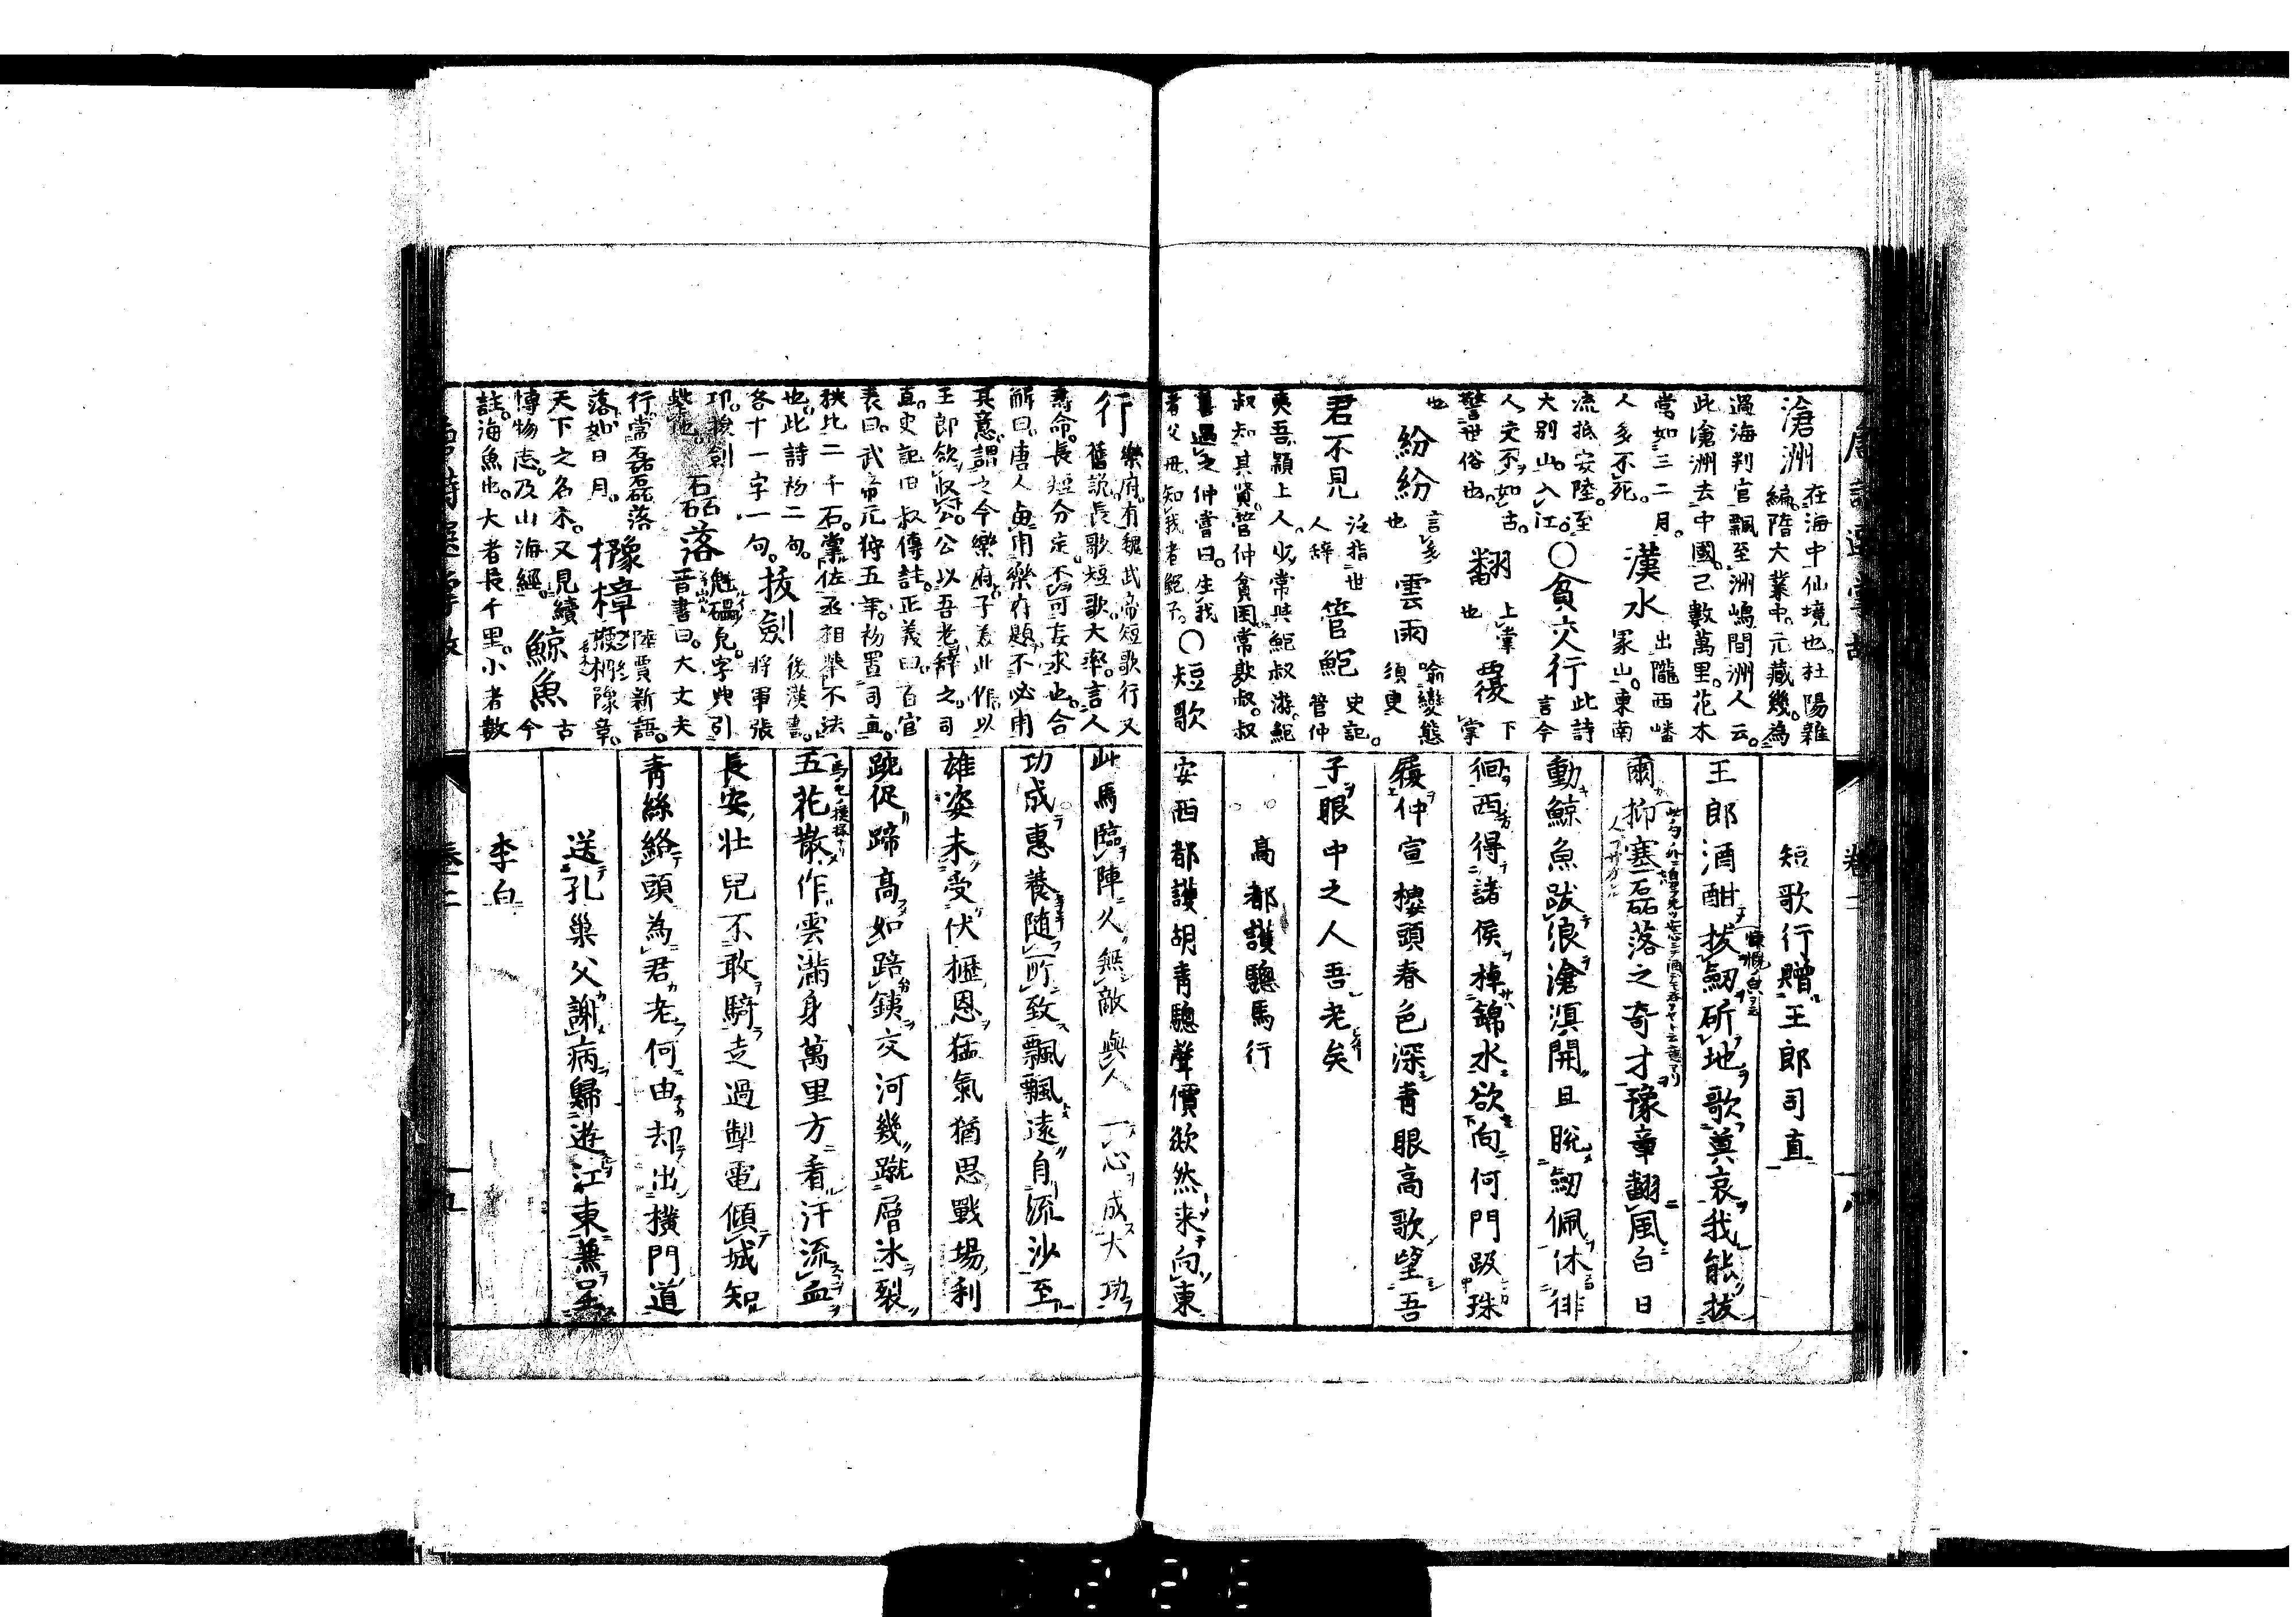 滄洲 在海中仙境也。杜陽雜
編。隋大業中。元藏幾。為
過海判官飄至洲嶋間洲人云。
此滄洲去中國。已數萬里。花木
常如三二月。
人多不死。 漢水 出隴西嶓
冢山。東南
流抵安陸。至
大別山。入江。〇貧交行 此詩
言今
人交不如古。
警世俗也。 翻 上掌
也 覆 下
掌
也 紛紛 言多
也 雲雨 喻變態
須臾
君不見 泛指世
人辭 管鮑 史記。
管仲
夷吾。潁上人。少常與鮑叔游。鮑
叔知其賢。管仲貧困。常欺叔。叔
善遇之仲嘗曰。生我
者父母。知我者鮑子。〇短歌
短歌行贈王郎司直
王郎酒酣拔劒斫地歌莫哀我能拔
爾抑塞磊落之奇才豫章翻風白日
動鯨魚跋浪滄溟開且脫劒佩休徘
徊西得諸侯棹錦水欲向何門趿珠
履仲宣樓頭春色深青眼高歌望吾
子眼中之人吾老矣
高都護驄馬行
安西都護胡青驄聲價欻然来向東
行 樂府。有魏武帝短歌行又
舊説。長歌短歌。大率。言人
壽命。長短分定。不可妄求也。合
解曰。唐人毎用樂府題。不必用
其意。謂之今樂府。子美此作。以
王郎欲收公。公以吾老辭之。司
直。史記田叔傳註。正義曰。百官
表曰。武帝元狩五年。初置司直。
秩比二千石。掌佐丞相擧不法
也。此詩初二句。
各十一字一句。拔劍 後漢書。
將軍張
印。拔劍
磊落 魁礧皃。字典引
晋書曰。大丈夫
行。常磊磊落
落。如日月。 豫樟 陸賈新語。
楩枏豫章。
天下之名木。又見續
博物志。及山海經。 鯨魚 古
今
註。海魚也。大者長千里。小者數
此馬臨陣久無敵與人一心成大功
功成惠養隨所致飄飄遠自流沙至
雄姿未受伏櫪恩猛氣猶思戰場利
踠促蹄高如踣鉄交河幾蹴層冰裂
五花散作雲滿身萬里方看汗流血
長安壯兒不敢騎走過掣電傾城知
青絲絡頭為君老何由却出横門道
送孔巢父謝病歸遊江東兼呈
李白